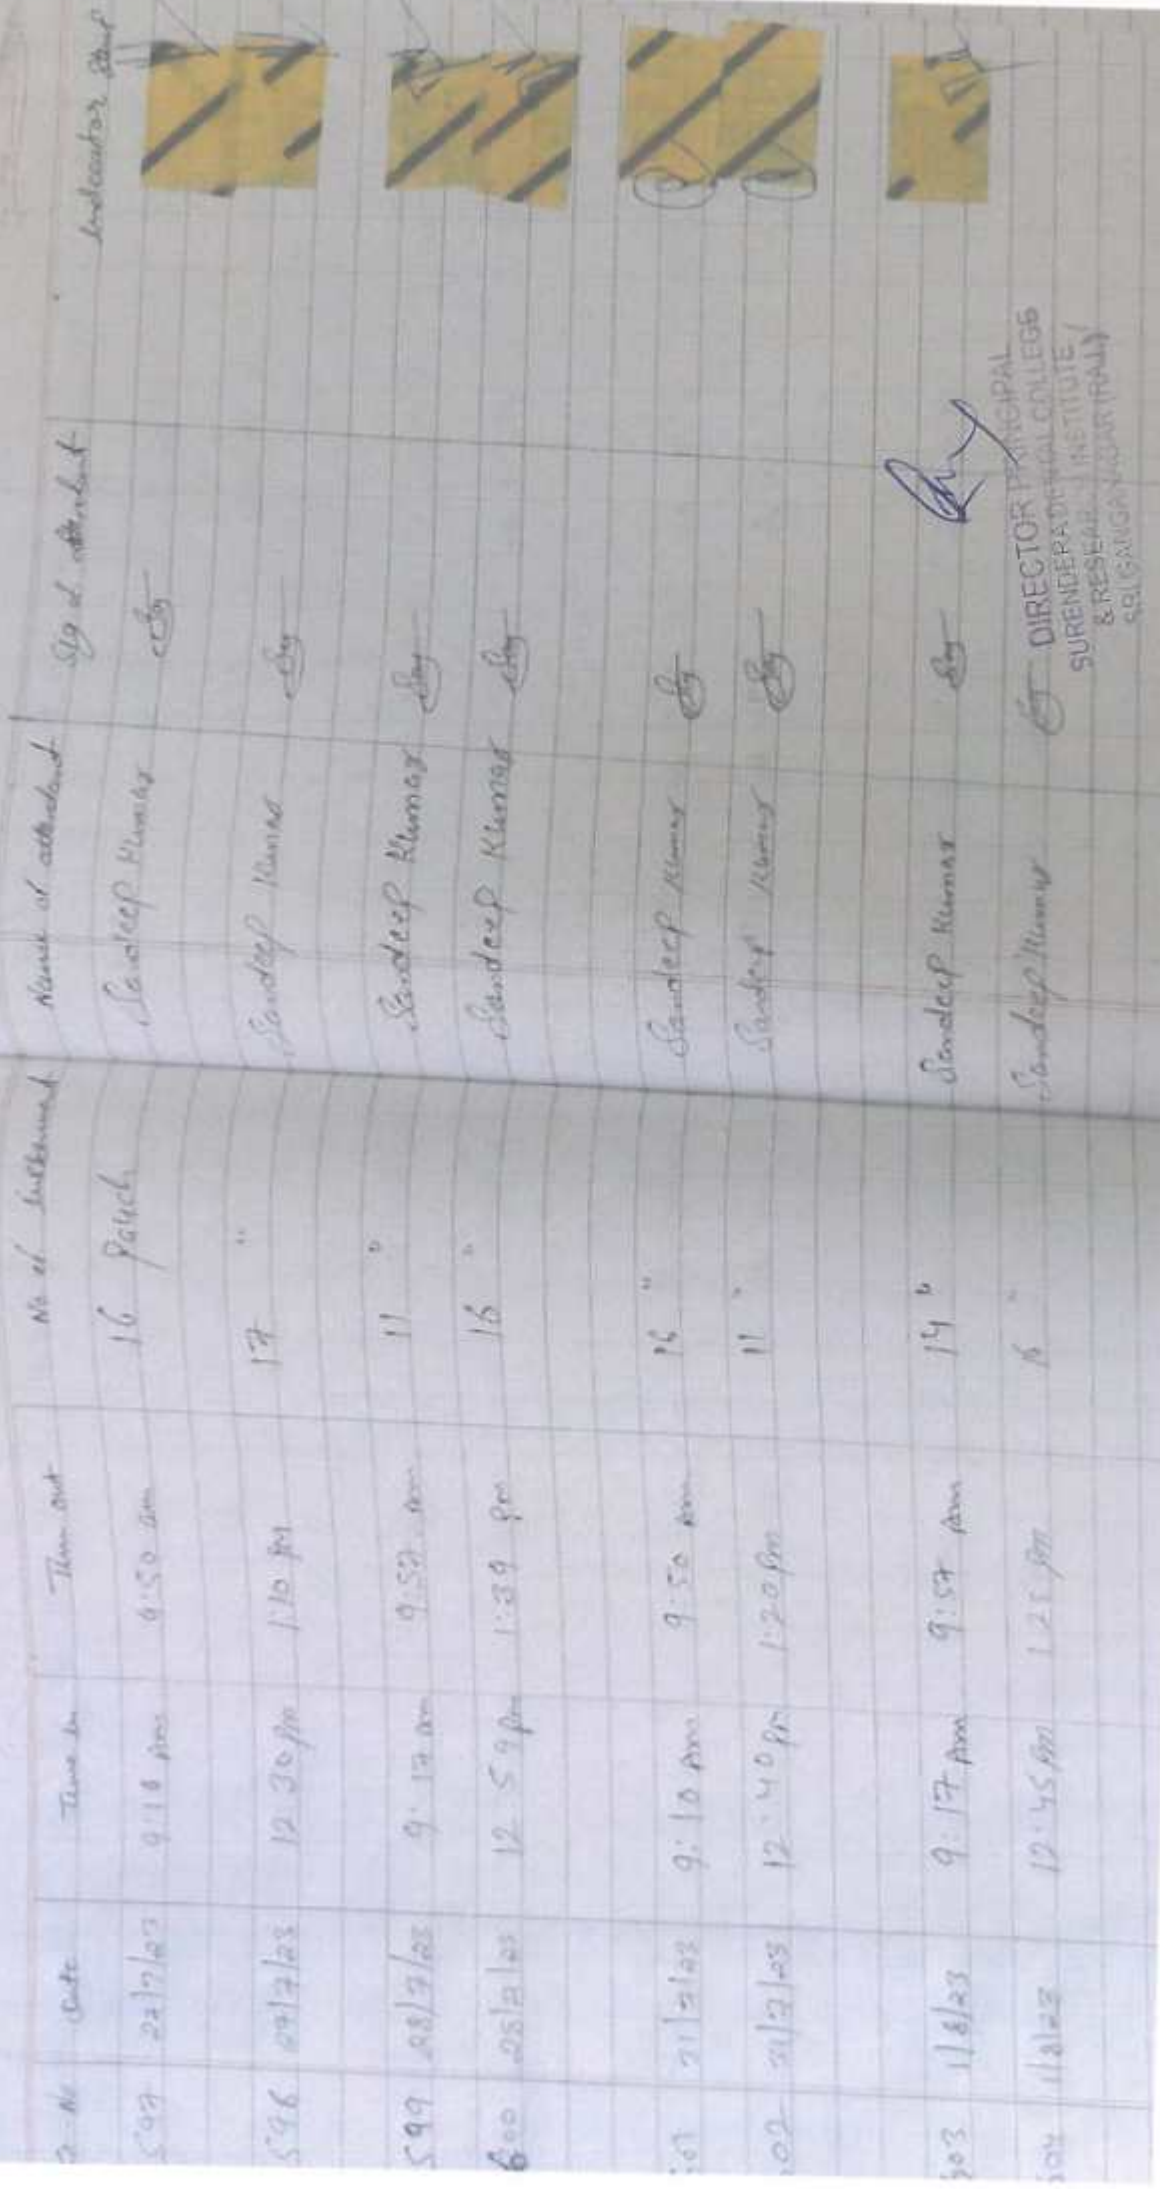 No Date Time In Time out No of Name of attendant Sig of attendant Indicator
597 9:10 Am 9:50 am 16 Pauch Sandeep Kumar
598 27/7/23 12 30 Pm 1:10 Pm 17 " Sandeep Kumar
599 28/7/23 9:17 am 9:57 Am 11 " Sandeep Kumar
600 28/7/23 12 59 Pm 1:39 Pm 16 " Sandeep Kumar
31/7/23 9:10 Am 9:50 Am 16 " Sandeep Kumar
31/7/23 12:40 Pm 1:20 Pm 11 " Sandeep Kumar
603 1/8/23 9:17 Am 9:57 Am 14 " Sandeep Kumar
604 1/8/23 12:45 Pm 1 25 Pm 16 " Sandeep Kumar
DIRECTOR PRINCIPAL
SURENDERA DENTAL COLLEGE
& RESEARCH INSTITUTE
SRI GANGANAGAR (RAJ)